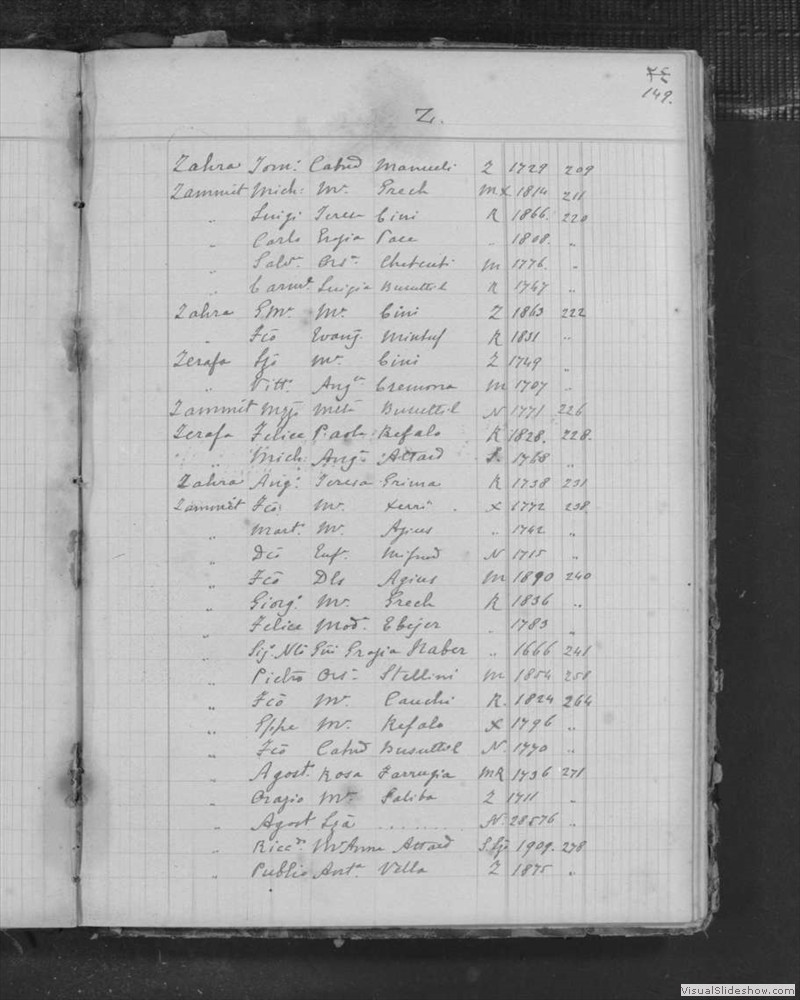 149.
Z.
Zahra Tom: Catnd Manueli Z 1729 209
Zammit Mich: Mr. Grech MX 1814 211
„ Luigi Teresa Cini R 1866. 220
„ Carlo Grazia Pace „ 1808. „
„ Salvr. Orsa. Chetcuti M 1776. „
„ Carmo. Luigia Busuttil R 1767 „
Zahra Emr. Mr. Cini Z 1863 222
„ Fco Evang. Mintuf R 1831 „
Zerafa Mr. Cini Z 1749 „
„ Vitt. Anga Cremona M 1707 „
Zammit Busuttil N 1771 226
Zerafa Felice Paola Refalo R 1828. 228.
„ Mich: Anga Attard S. 1768 „
Zahra Ang: Teresa Grima R 1738 231
Zammit Fco Mr. Xerri X 1772 238
„ Mart. Mr. Agius „ 1742 „
„ Dco Euf. Mifsud N 1715 „
„ Fco Dls Agius M 1890 240
„ Giorg. Mr. Grech R 1836 „
„ Felice Mod. Ebejer „ 1783 „
„ Sij. Nto Grazia Haber „ 1666 241
„ Pietro Orsa. Stellini M 1854 251
„ Fco Mr. Cauchi R. 1824 264
„ Gppe Mr. Refalo X 1796 „
„ Fco Catnd Busuttil N. 1770 „
„ Agost. Rosa Farrugia MR 1736 271
„ Orazio Mr. Saliba Z 1711 „
„ Agost ........ N. 28576 „
„ Riccdo. Mr Anna Attard 1909. 278
„ Publio Anta. Vella Z 1875 „
VisualSlideshow.com